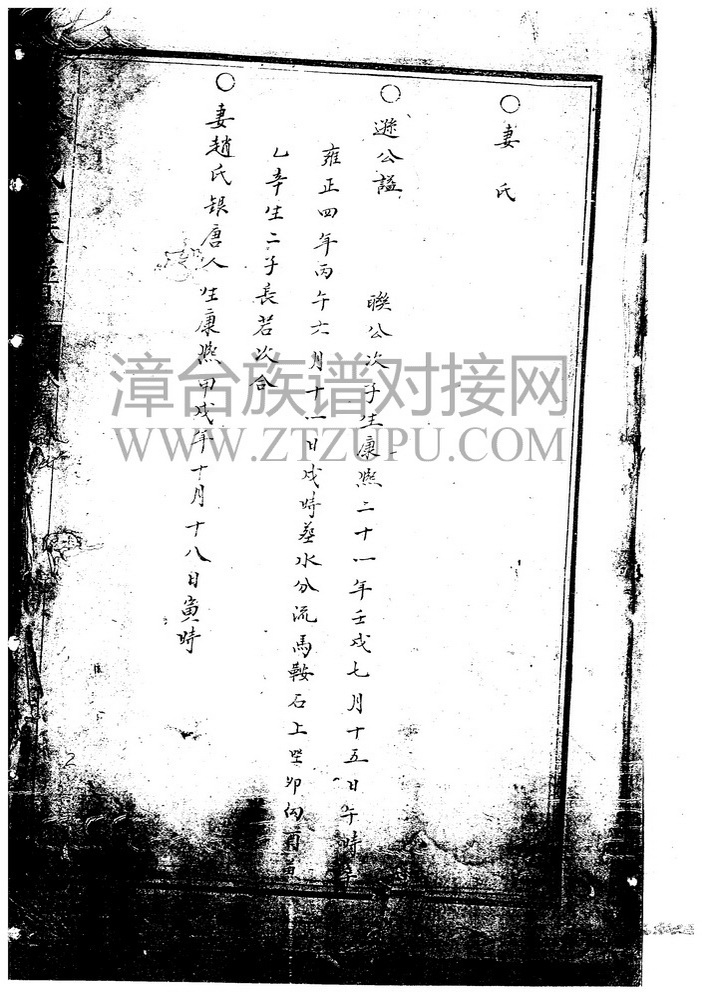 ○妻氏
○遜公謚
聯公次子生康熙二十一年壬戌七月十五日午時卒
雍正四年丙午六月十一日戌時葬水分流馬鞍石上坐卯向酉兼
乙辛生二子長若次合
○妻趙氏銀唐人生康熙甲戌年十月十八日寅時
漳台族谱对接网
WWW.ZTZUPU.COM
2